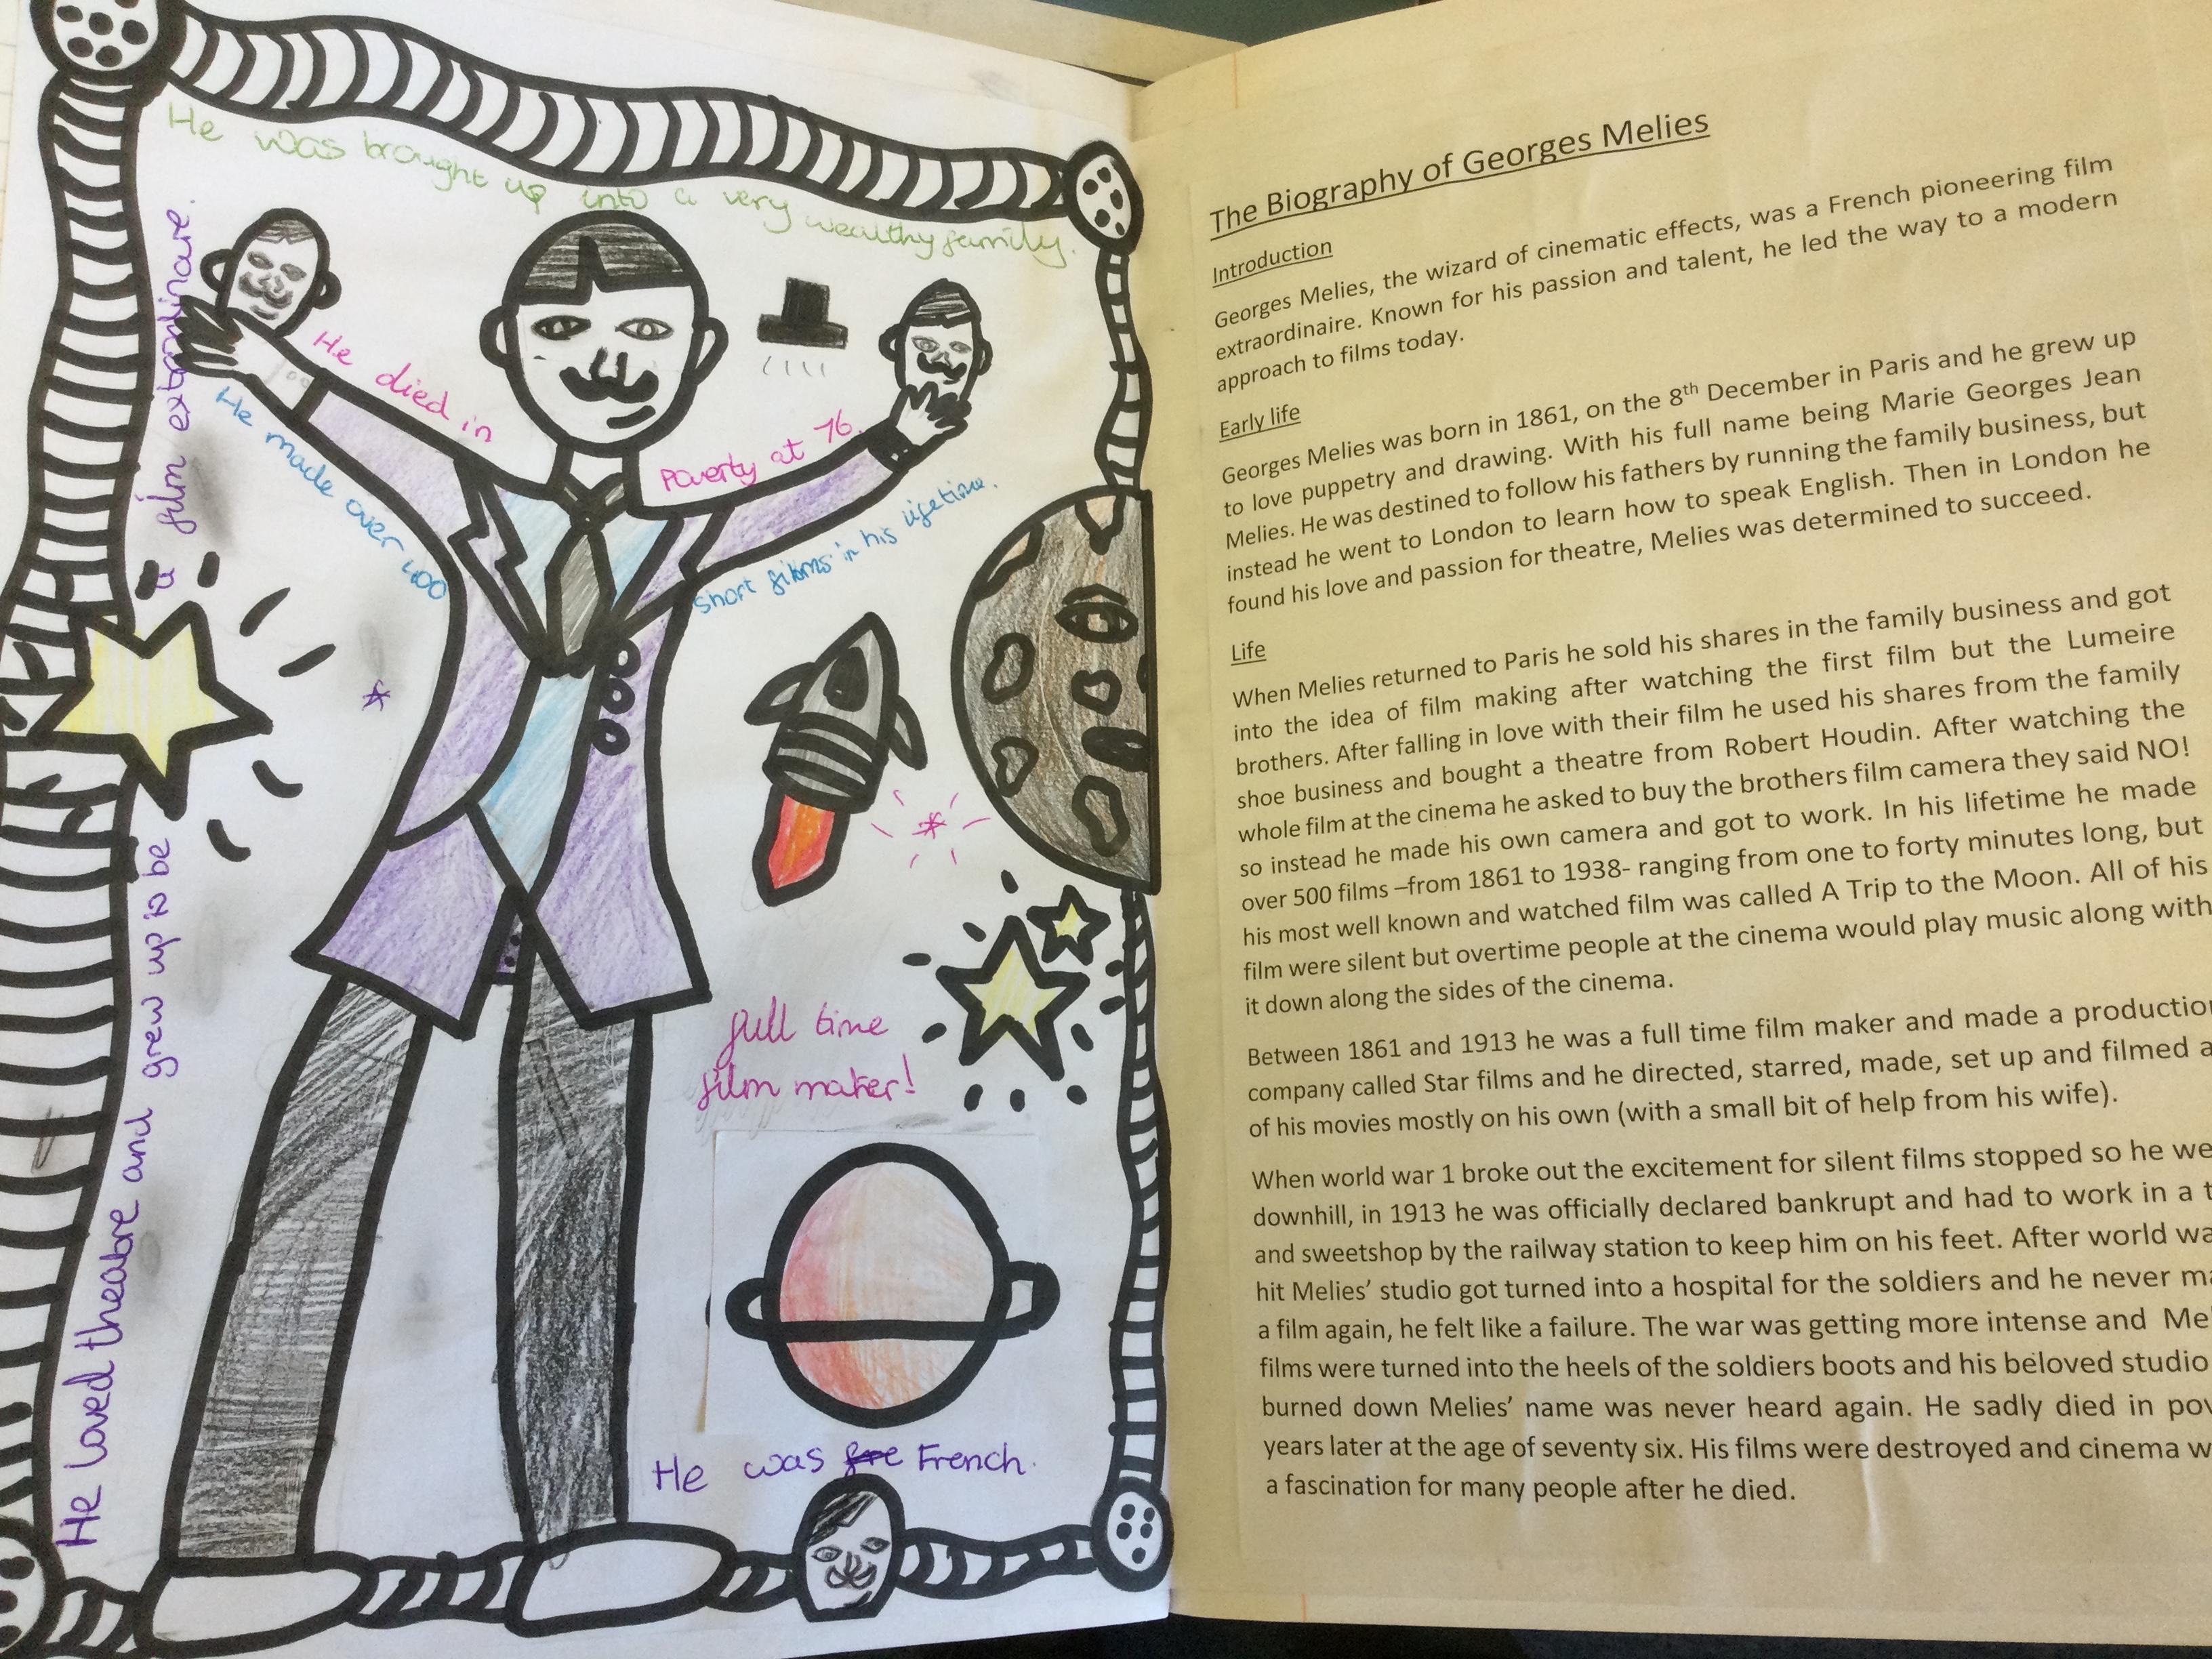 He was brought up into a very wealthy family.
He died in
poverty at 76.
He made over 400
short films in his lifetime.
He loved theatre and grew up to be a film extraordinare.
full time
film maker!
He was fre French.
The Biography of Georges Melies
Introduction
Georges Melies, the wizard of cinematic effects, was a French pioneering film
extraordinaire. Known for his passion and talent, he led the way to a modern
approach to films today.
Early life
Georges Melies was born in 1861, on the 8th December in Paris and he grew up
to love puppetry and drawing. With his full name being Marie Georges Jean
Melies. He was destined to follow his fathers by running the family business, but
instead he went to London to learn how to speak English. Then in London he
found his love and passion for theatre, Melies was determined to succeed.
Life
When Melies returned to Paris he sold his shares in the family business and got
into the idea of film making after watching the first film but the Lumeire
brothers. After falling in love with their film he used his shares from the family
shoe business and bought a theatre from Robert Houdin. After watching the
whole film at the cinema he asked to buy the brothers film camera they said NO!
so instead he made his own camera and got to work. In his lifetime he made
over 500 films –from 1861 to 1938- ranging from one to forty minutes long, but
his most well known and watched film was called A Trip to the Moon. All of his
film were silent but overtime people at the cinema would play music along with
it down along the sides of the cinema.
Between 1861 and 1913 he was a full time film maker and made a productio
company called Star films and he directed, starred, made, set up and filmed a
of his movies mostly on his own (with a small bit of help from his wife).
When world war 1 broke out the excitement for silent films stopped so he we
downhill, in 1913 he was officially declared bankrupt and had to work in a t
and sweetshop by the railway station to keep him on his feet. After world wa
hit Melies’ studio got turned into a hospital for the soldiers and he never ma
a film again, he felt like a failure. The war was getting more intense and Mel
films were turned into the heels of the soldiers boots and his beloved studio
burned down Melies’ name was never heard again. He sadly died in pov
years later at the age of seventy six. His films were destroyed and cinema w
a fascination for many people after he died.